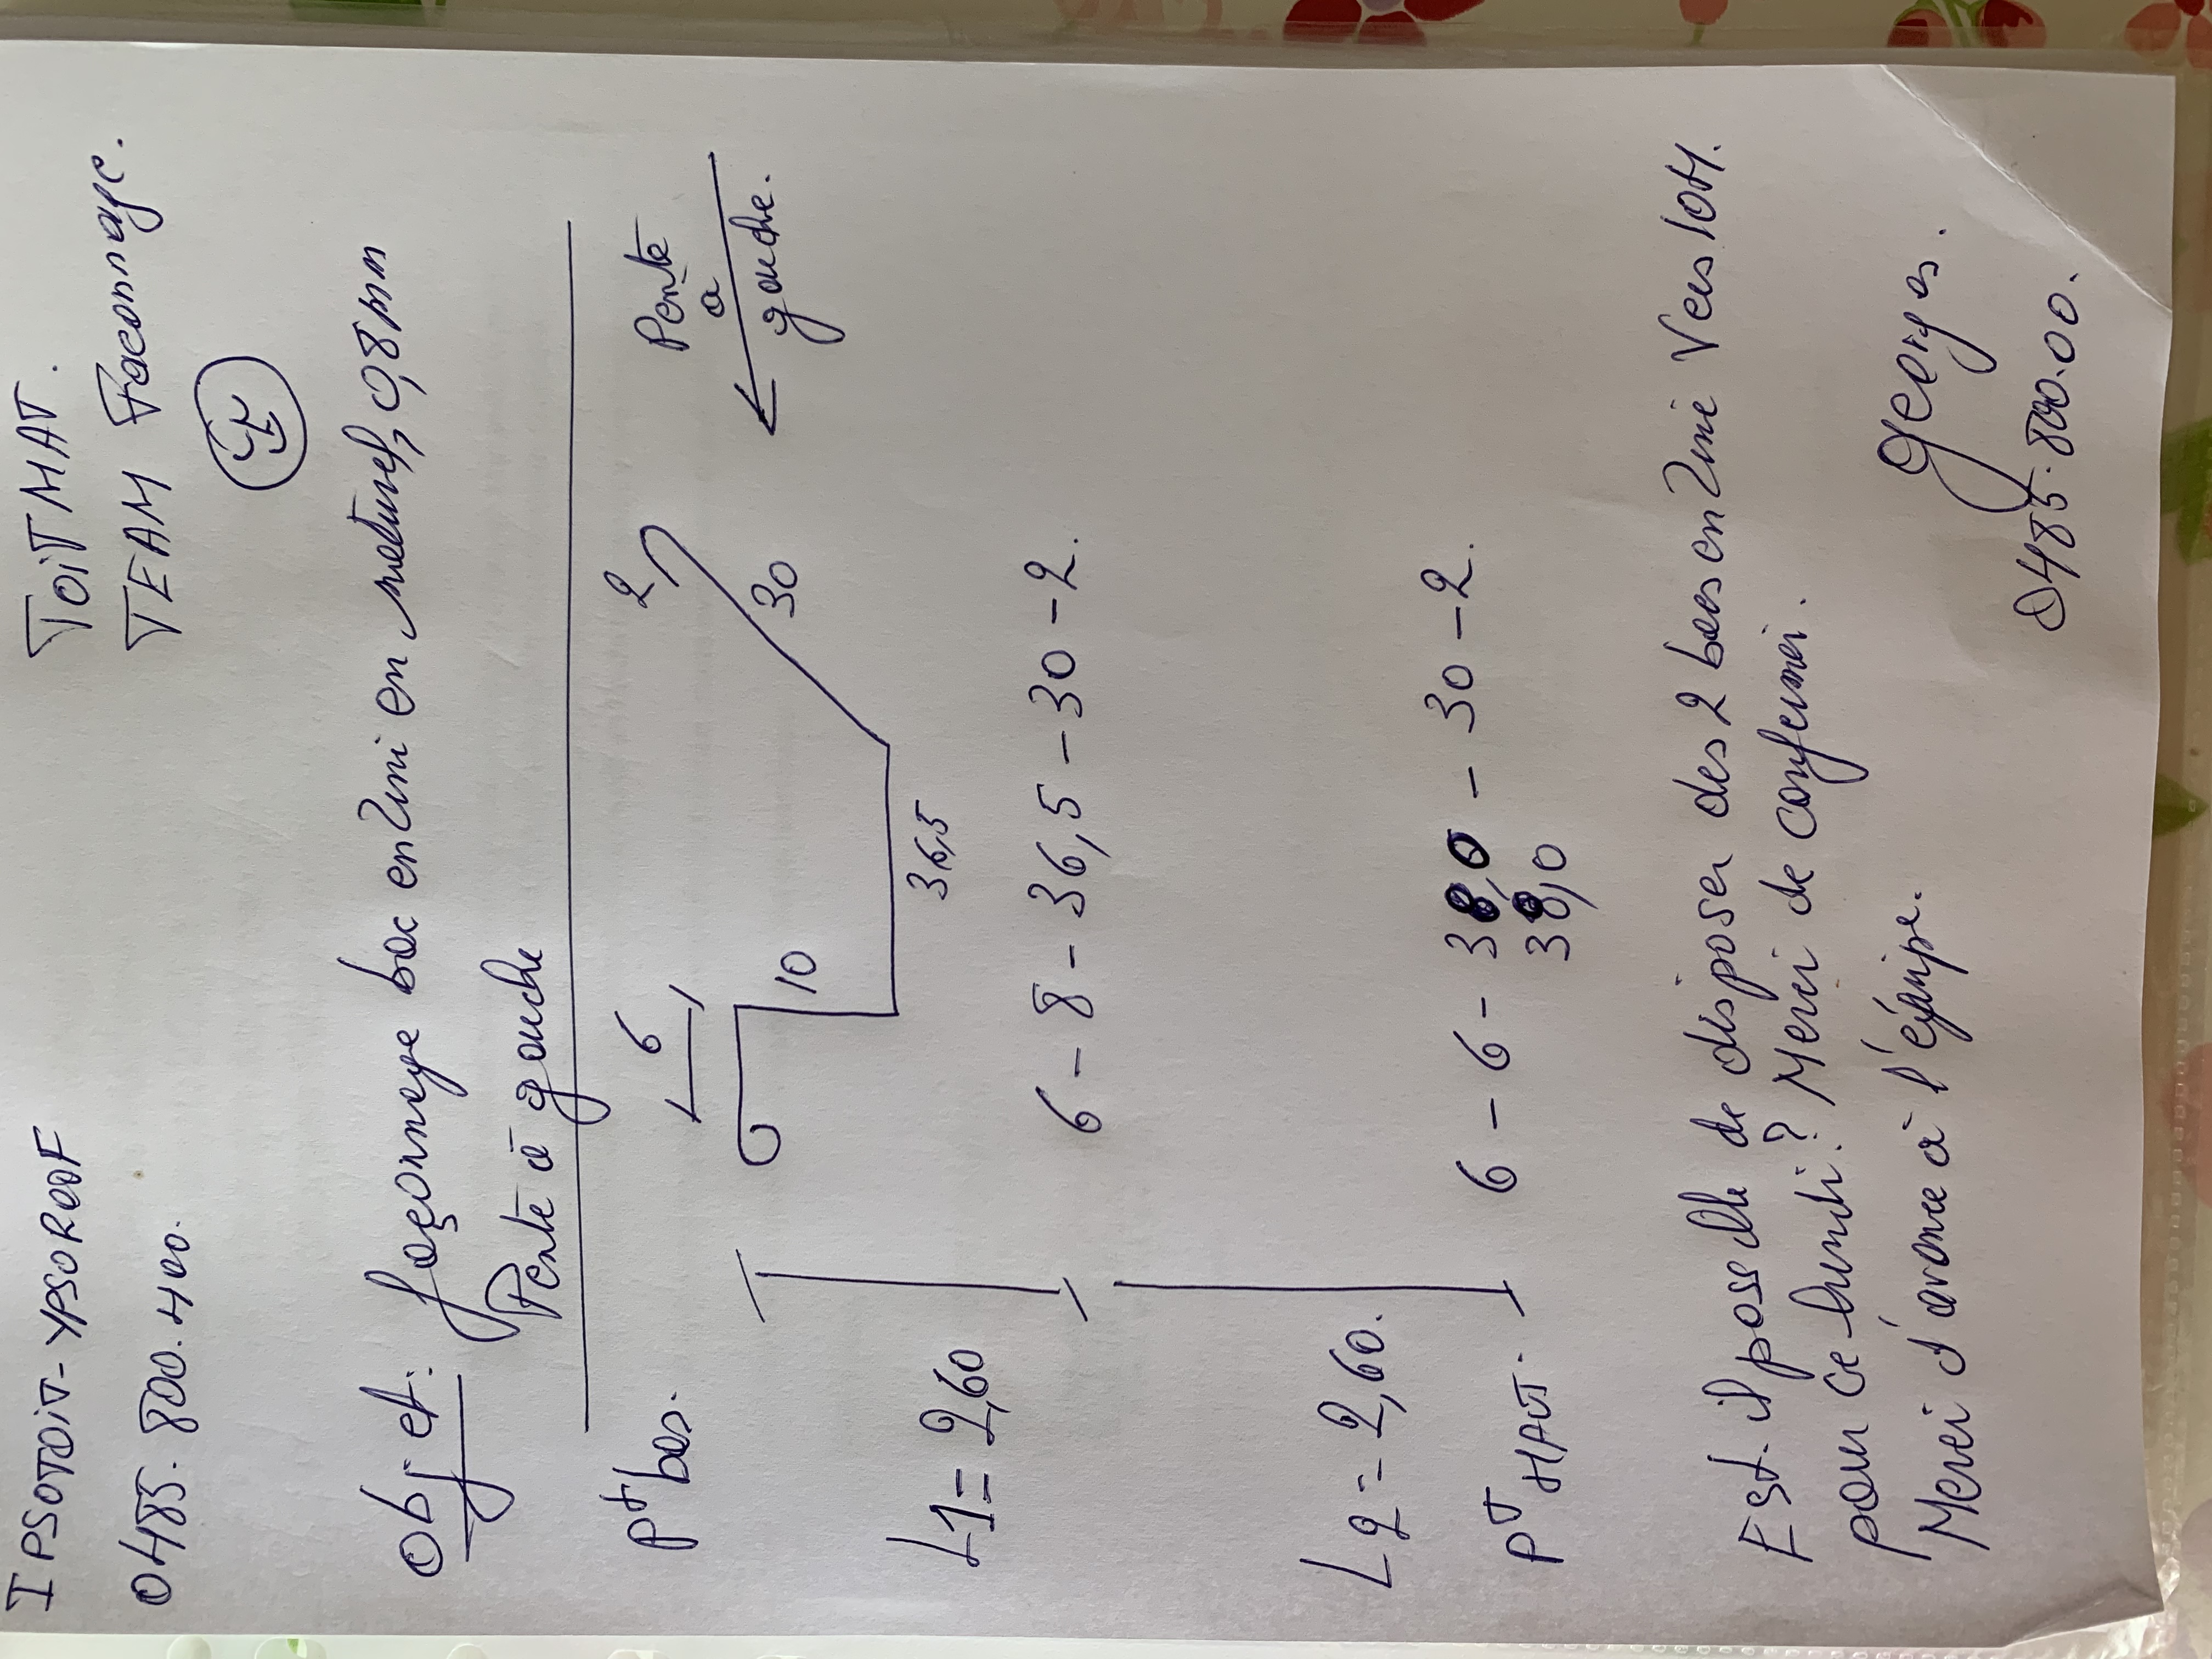 IPSOTOIT - YPSOROOF
0485.800.400.
TOITMAT.
TEAM Faconnage.
Objet: façonnage bac en Zinc en naturel, 0,8 mm
Pente à gauche
Pt bas.
6
10
36,5
30
2
Pente
a
gauche.
L1 = 2,60
6 - 8 - 36,5 - 30 - 2.
L2 = 2,60.
PT HAUT.
6 - 6 - 38,0 - 30 - 2.
38,0
Est-il possible de disposer des 2 bacs en Zinc Vers 10H.
pour ce lundi? Merci de confirmer.
Merci d'avance à l'équipe.
Georges.
0485.800.00.